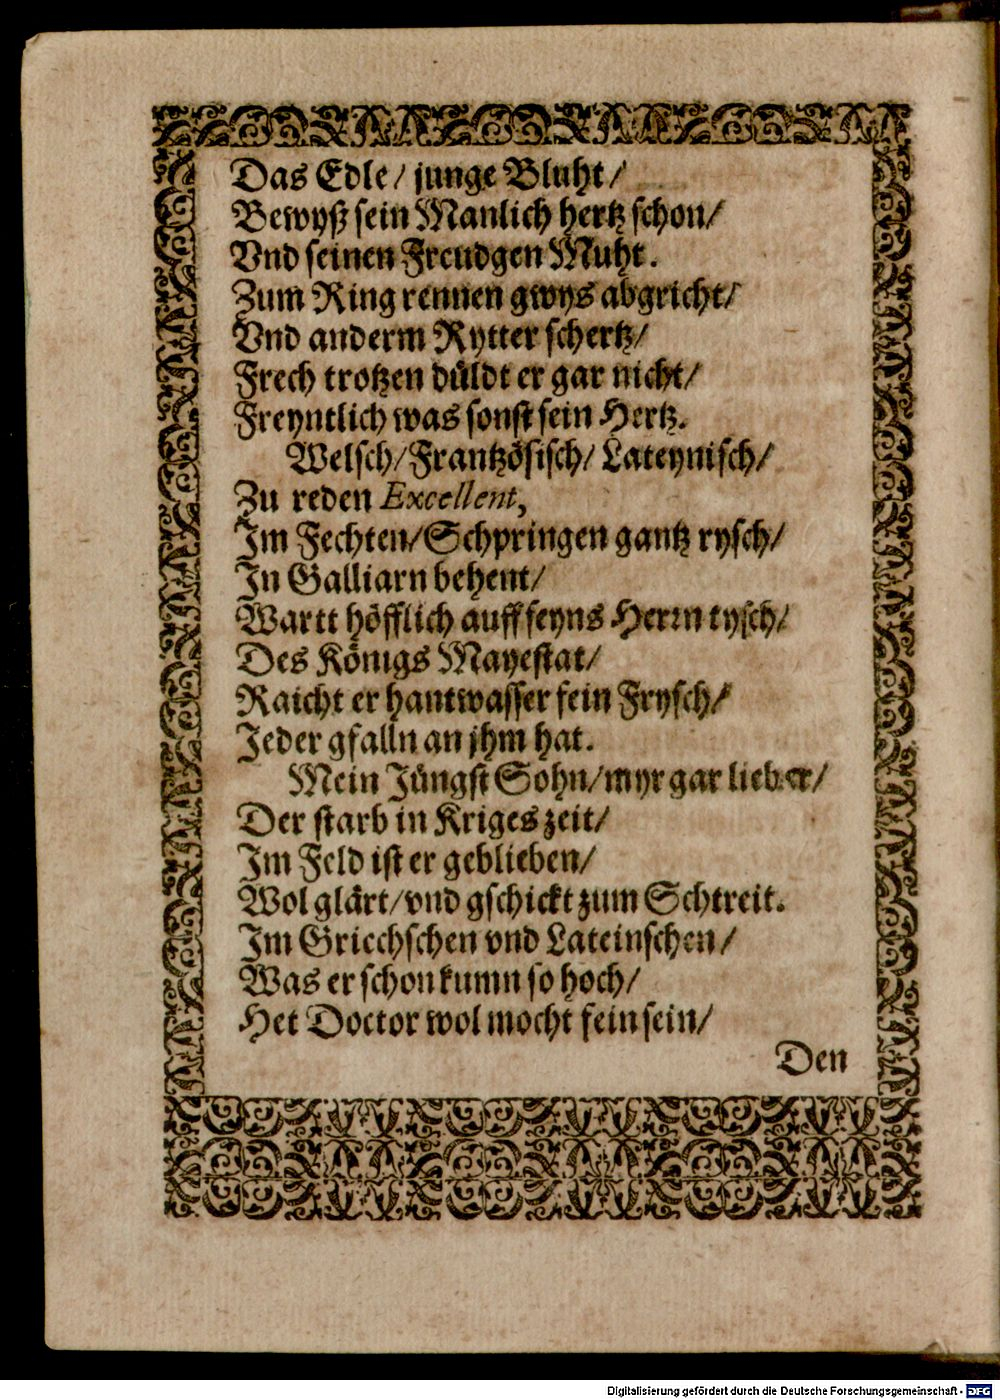 Das Edle/ junge Bluht/
Bewyß sein Manlich hertz schon/
Vnd seinen Freudgen Muht.
Zum Ring rennen gwys abgricht/
Vnd anderm Rytter schertz/
Frech trotzen důldt er gar nicht/
Freyntlich was sonst sein Hertz.
Welsch/Frantzösisch/ Lateynisch/
Zu reden Excellent,
Im Fechten/Schpringen gantz rysch/
In Galliarn behent/
Wartt höfflich auff seyns Herrn tysch/
Des Königs Mayestat/
Raicht er hantwasser fein Frysch/
Jeder gfalln an jhm hat.
Mein Jüngst Sohn/myr gar lieber/
Der starb in Kriges zeit/
Im Feld ist er geblieben/
Wol glärt/vnd gschickt zum Schtreit.
Im Griechschen vnd Lateinschen/
Was er schon kumn so hoch/
Het Doctor wol mocht fein sein/
Den
Digitalisierung gefördert durch die Deutsche Forschungsgemeinschaft - DFG